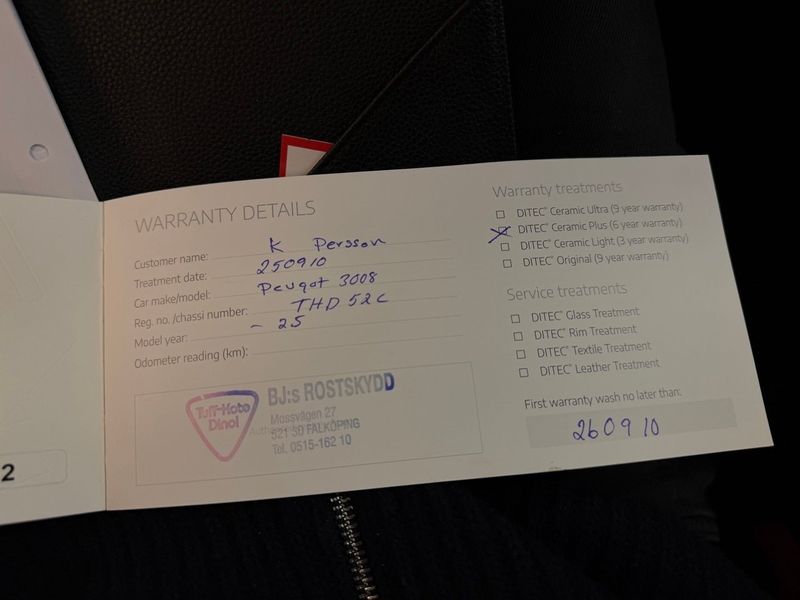 WARRANTY DETAILS
Customer name: K Persson
Treatment date: 250910
Car make/model: Peugot 3008
Reg. no. /chassi number: THD 52C
Model year: - 25
Odometer reading (km):
Tuff-Kote
Dinol
BJ:s ROSTSKYDD
Mossvägen 27
521 30 FALKÖPING
Tel. 0515-162 10
Warranty treatments
DITEC® Ceramic Ultra (9 year warranty)
DITEC® Ceramic Plus (6 year warranty)
DITEC® Ceramic Light (3 year warranty)
DITEC® Original (9 year warranty)
Service treatments
DITEC® Glass Treatment
DITEC® Rim Treatment
DITEC® Textile Treatment
DITEC® Leather Treatment
First warranty wash no later than:
260910
2